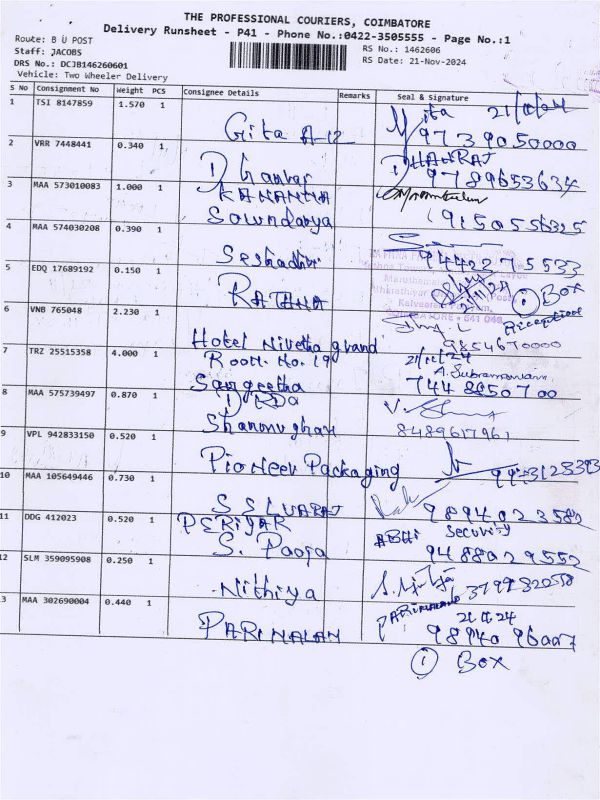 THE PROFESSIONAL COURIERS, COIMBATORE
Delivery Runsheet - P41 - Phone No.:0422-3505555 - Page No.:1
Route: B U POST
Staff: JACOBS
RS No.: 1462606
DRS No.: DCJB146260601
RS Date: 21-Nov-2024
Vehicle: Two Wheeler Delivery
S No Consignment No Weight PCS Consignee Details Remarks Seal & Signature
1 TSI 8147859 1.570 1
Gita A-12
21/11/24
9739050000
2 VRR 7448441 0.340 1
Dhanraj
DHANRAJ
9789653634
3 MAA 573010083 1.000 1
Soundarya
9150556325
4 MAA 574030208 0.390 1
Seshadhri
9442275533
5 EDQ 17689192 0.150 1
RATHNA
21/11/24
① BOX
6 VNB 765048 2.230 1
Hotel Nivetha grand
Room. No. 19
Reception
9854670000
7 TRZ 25515358 4.000 1
Sangeetha
21/11/24
A. Subramaniam
7448850700
8 MAA 575739497 0.870 1
Shanmugham
8489617961
9 VPL 942833150 0.520 1
Pioneer Packaging
10 MAA 105649446 0.730 1
S SELVARAJ
9894023582
11 DDG 412023 0.520 1
PERIYAR
S. Pooja
ABHI Security
9488029552
12 SLM 359095908 0.250 1
Nithiya
13 MAA 302690004 0.440 1
PARIMALAM
PARIMALAM
21.11.24
9894096007
① BOX